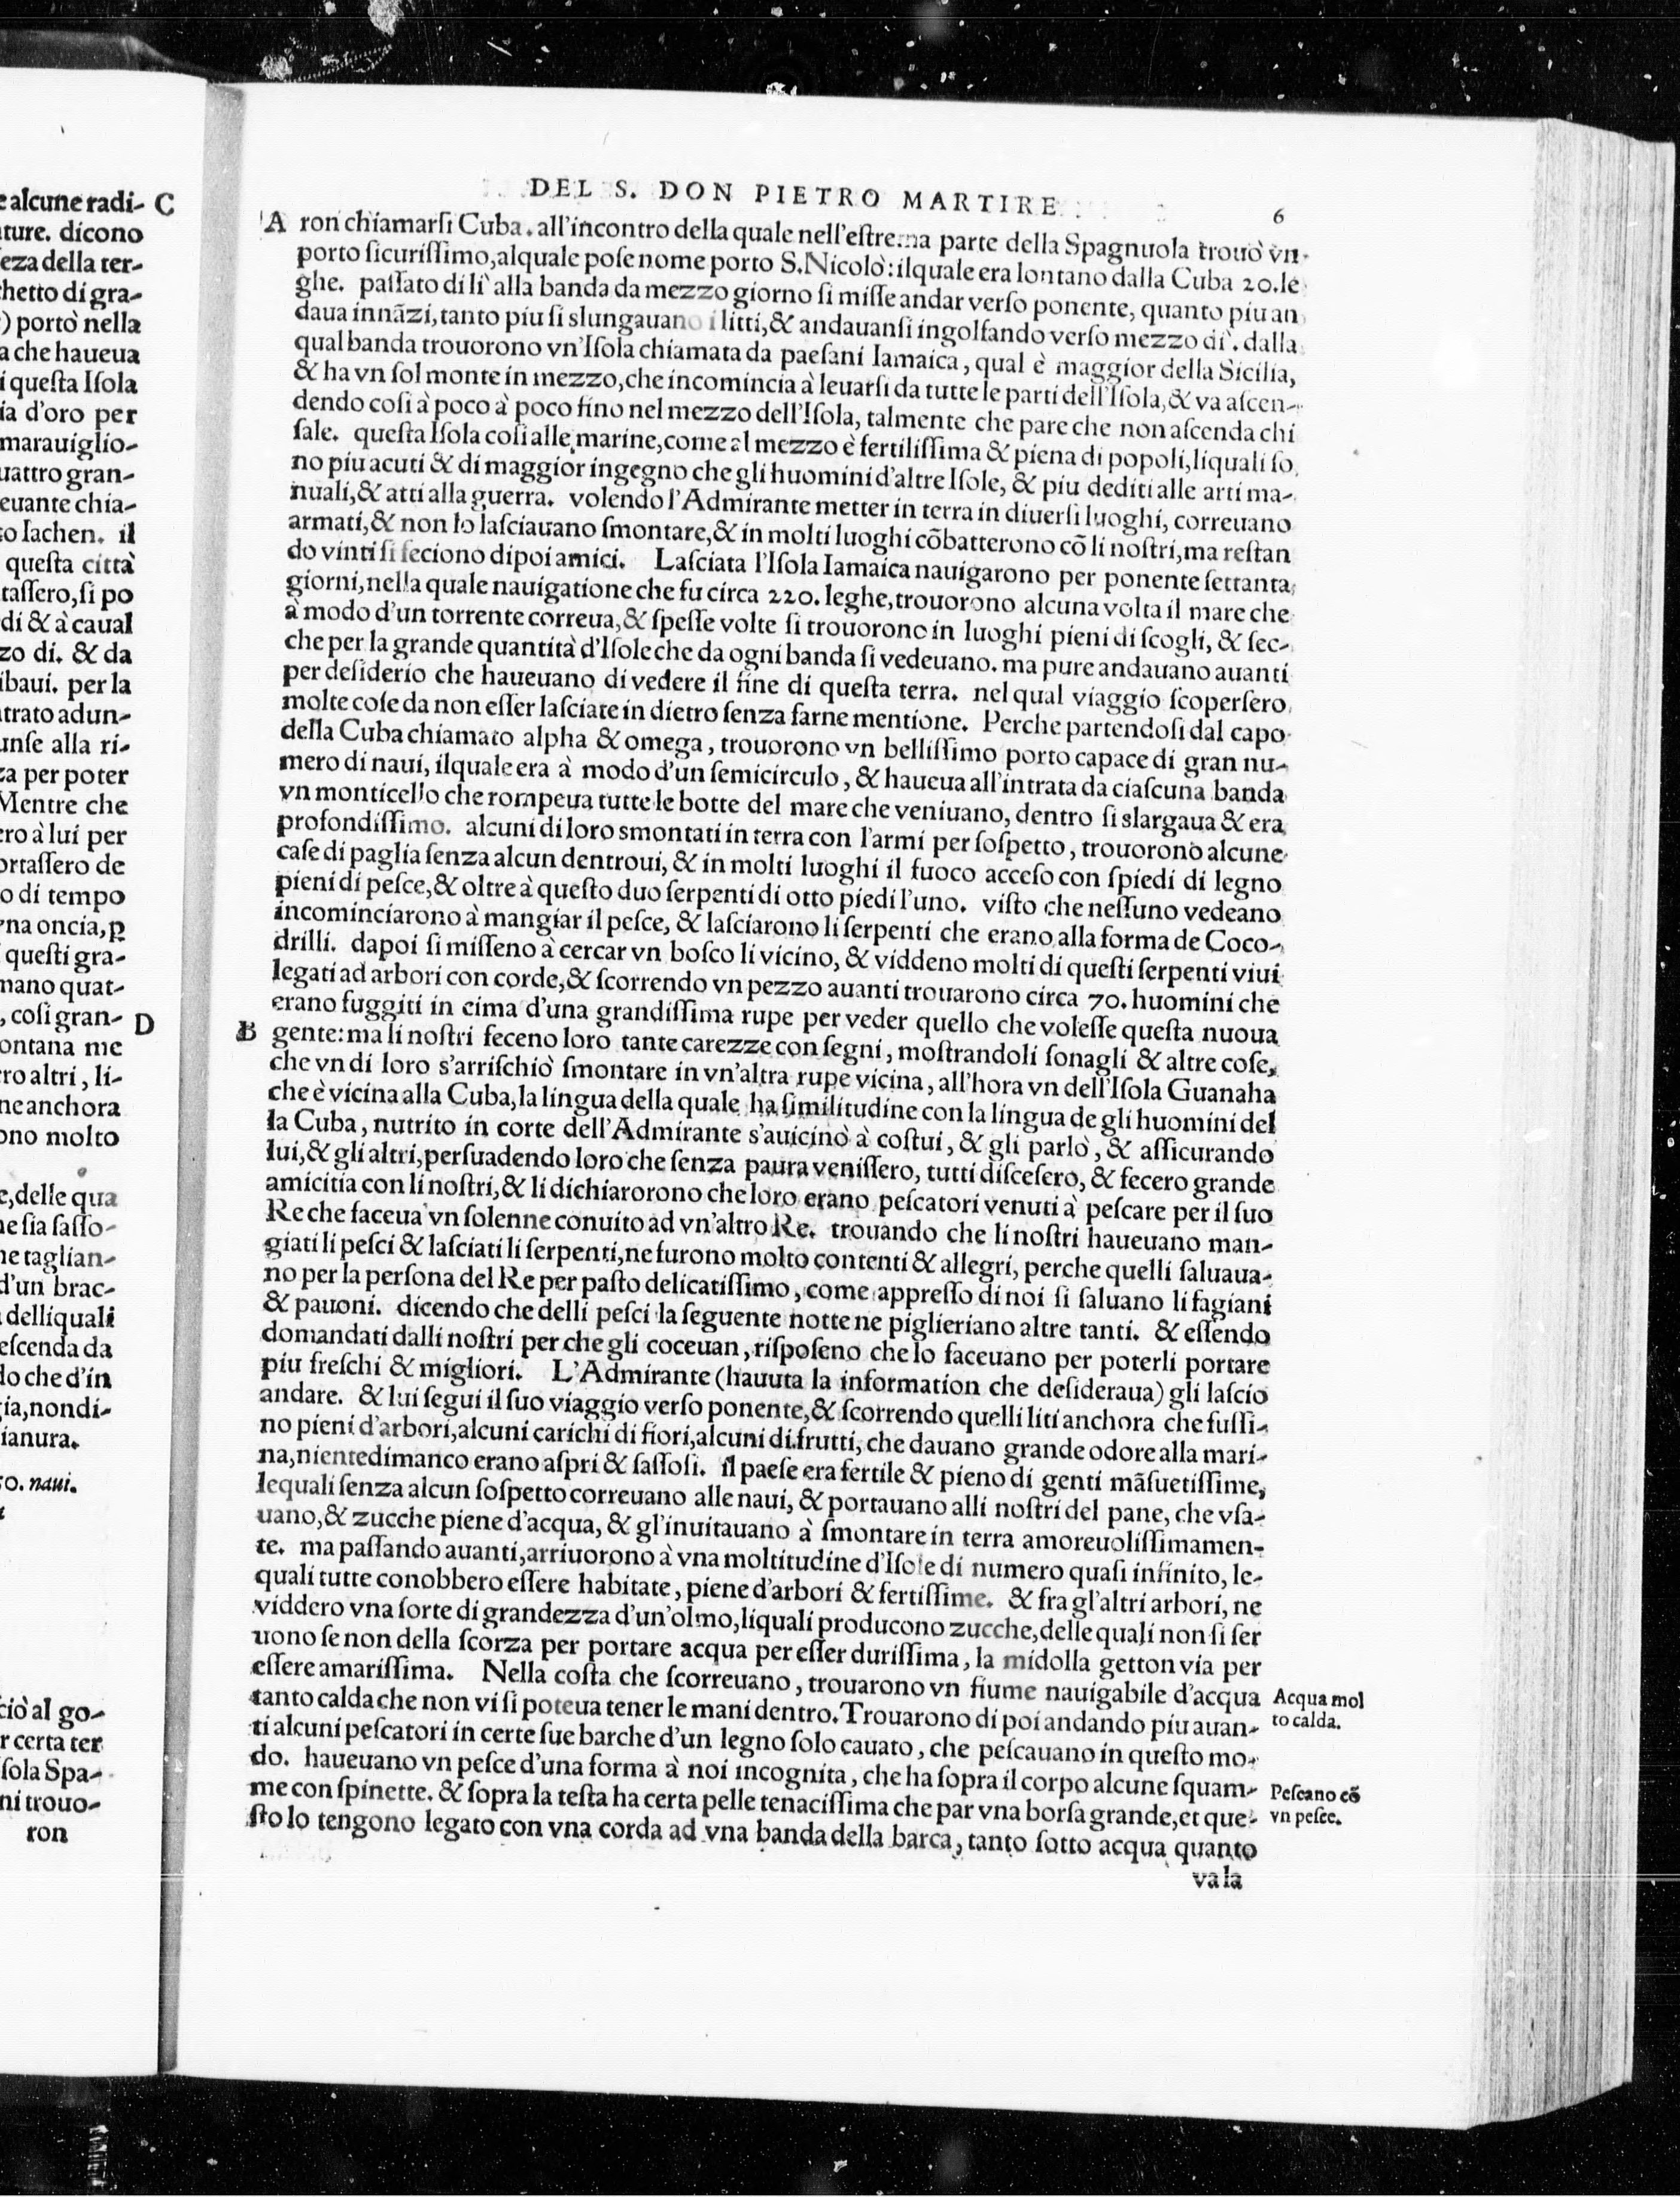 e alcune radi- C
ture. dicono
eza della ter-
hetto di gra-
) portò nella
a che haueua
i questa Isola
ia d'oro per
marauiglio-
uattro gran-
euante chia-
to Iachen. il
questa città
tassero, si po
di & à caual
zo di. & da
ibaui. per la
trato adun-
unse alla ri-
za per poter
Mentre che
ero à lui per
ortassero de
o di tempo
vna oncia, p
questi gra-
mano quat-
, cosi gran- D
ontana me
ro altri, li-
ne anchora
ono molto
e, delle qua
he sia sasso-
ne taglian-
d'un brac-
delliquali
escenda da
do che d'in
gia, nondi-
ianura.
50. naui.
ciò al go-
r certa ter
sola Spa-
ni trouo-
ron
DEL S. DON PIETRO MARTIRE
6
A ron chiamarsi Cuba. all'incontro della quale nell'estrema parte della Spagnuola trouò vn
porto sicurissimo, alquale pose nome porto S. Nicolò: ilquale era lontano dalla Cuba 20. le
ghe. passato di lì alla banda da mezzo giorno si misse andar verso ponente, quanto piu an
daua innãzi, tanto piu si slungauano i litti, & andauansi ingolfando verso mezzo dì. dalla
qual banda trouorono vn'Isola chiamata da paesani Iamaica, qual è maggior della Sicilia,
& ha vn sol monte in mezzo, che incomincia à leuarsi da tutte le parti dell'Isola, & va ascen-
dendo cosi à poco à poco fino nel mezzo dell'Isola, talmente che pare che non ascenda chi
sale. questa Isola cosi alle marine, come al mezzo è fertilissima & piena di popoli, liquali so
no piu acuti & di maggior ingegno che gli huomini d'altre Isole, & piu dediti alle arti ma-
nuali, & atti alla guerra. volendo l'Admirante metter in terra in diuersi luoghi, correuano
armati, & non lo lasciauano smontare, & in molti luoghi cõbatterono cõ li nostri, ma restan
do vinti si feciono dipoi amici. Lasciata l'Isola Iamaica nauigarono per ponente settanta
giorni, nella quale nauigatione che fu circa 220. leghe, trouorono alcuna volta il mare che
à modo d'un torrente correua, & spesse volte si trouorono in luoghi pieni di scogli, & sec-
che per la grande quantità d'Isole che da ogni banda si vedeuano. ma pure andauano auanti
per desiderio che haueuano di vedere il fine di questa terra. nel qual viaggio scopersero
molte cose da non esser lasciate in dietro senza farne mentione. Perche partendosi dal capo
della Cuba chiamato alpha & omega, trouorono vn bellissimo porto capace di gran nu-
mero di naui, ilquale era à modo d'un semicirculo, & haueua all'intrata da ciascuna banda
vn monticello che rompeua tutte le botte del mare che veniuano, dentro si slargaua & era
profondissimo. alcuni di loro smontati in terra con l'armi per sospetto, trouorono alcune
case di paglia senza alcun dentroui, & in molti luoghi il fuoco acceso con spiedi di legno
pieni di pesce, & oltre à questo duo serpenti di otto piedi l'uno. visto che nessuno vedeano
incominciarono à mangiar il pesce, & lasciarono li serpenti che erano alla forma de Coco-
drilli. dapoi si misseno à cercar vn bosco li vicino, & viddeno molti di questi serpenti viui
legati ad arbori con corde, & scorrendo vn pezzo auanti trouarono circa 70. huomini che
erano fuggiti in cima d'una grandissima rupe per veder quello che volesse questa nuoua
B gente: ma li nostri feceno loro tante carezze con segni, mostrandoli sonagli & altre cose,
che vn di loro s'arrischiò smontare in vn'altra rupe vicina, all'hora vn dell'Isola Guanaha
che è vicina alla Cuba, la lingua della quale ha similitudine con la lingua de gli huomini del
la Cuba, nutrito in corte dell'Admirante s'auicinò à costui, & gli parlò, & assicurando
lui, & gli altri, persuadendo loro che senza paura venissero, tutti discesero, & fecero grande
amicitia con li nostri, & li dichiarorono che loro erano pescatori venuti à pescare per il suo
Re che faceua vn solenne conuito ad vn'altro Re. trouando che li nostri haueuano man-
giati li pesci & lasciati li serpenti, ne furono molto contenti & allegri, perche quelli saluaua-
no per la persona del Re per pasto delicatissimo, come appresso di noi si saluano li fagiani
& pauoni. dicendo che delli pesci la seguente notte ne piglieriano altre tanti. & essendo
domandati dalli nostri per che gli coceuan, risposeno che lo faceuano per poterli portare
piu freschi & migliori. L'Admirante (hauuta la information che desideraua) gli lascio
andare. & lui seguì il suo viaggio verso ponente, & scorrendo quelli liti anchora che fussi-
no pieni d'arbori, alcuni carichi di fiori, alcuni di frutti, che dauano grande odore alla mari-
na, nientedimanco erano aspri & sassosi. il paese era fertile & pieno di genti mãsuetissime,
lequali senza alcun sospetto correuano alle naui, & portauano alli nostri del pane, che vsa-
uano, & zucche piene d'acqua, & gl'inuitauano à smontare in terra amoreuolissimamen-
te. ma passando auanti, arriuorono à vna moltitudine d'Isole di numero quasi infinito, le-
quali tutte conobbero essere habitate, piene d'arbori & fertissime. & fra gl'altri arbori, ne
viddero vna sorte di grandezza d'un'olmo, liquali producono zucche, delle quali non si ser
uono se non della scorza per portare acqua per esser durissima, la midolla getton via per
essere amarissima. Nella costa che scorreuano, trouarono vn fiume nauigabile d'acqua
tanto calda che non vi si poteua tener le mani dentro. Trouarono di poi andando piu auan-
ti alcuni pescatori in certe sue barche d'un legno solo cauato, che pescauano in questo mo-
do. haueuano vn pesce d'una forma à noi incognita, che ha sopra il corpo alcune squam-
me con spinette. & sopra la testa ha certa pelle tenacissima che par vna borsa grande, et que-
sto lo tengono legato con vna corda ad vna banda della barca, tanto sotto acqua quanto
va la
Acqua mol
to calda.
Pescano cõ
vn pesce.